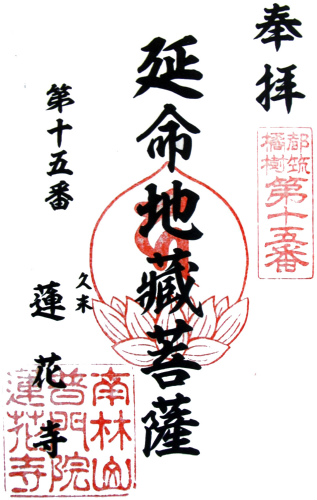 奉拝
都筑
橘樹
第十五番
延命地藏菩薩
第十五番
久末
蓮花寺
南林山
普門院
蓮花寺